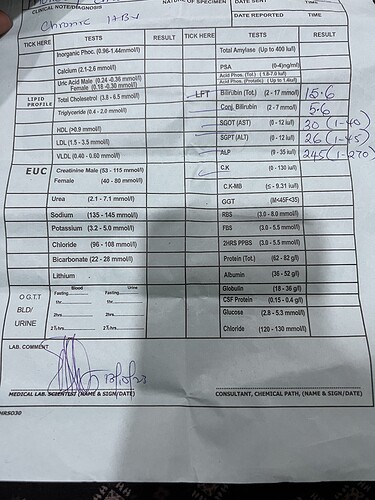 CLINICAL NOTE/DIAGNOSIS NATURE OF SPECIMEN DATE SENT TIME
Chronic HBV DATE REPORTED TIME
TICK HERE TESTS RESULT TICK HERE TESTS RESULT
Inorganic Phoc. (0.96-1.44mmol/l) Total Amylase (Up to 400 iu/l)
Calcium (2.1-2.6 mmol/l) PSA (0-4)ng/ml)
Uric Acid Male (0.24 -0.36 mmol/l) Acid Phos. (Tot.) (1.8-7.0 iu/l)
Female (0.18 -0.30 mmol/l) Acid Phos. (Prostatic) (Up to 1.4iu/l)
LIPID PROFILE Total Cholesetrol (3.8 - 6.5 mmol/l) LFT Bilirubin (Tot.) (2 - 17 mmol/l) 15.6
Triglyceride (0.4 - 2.0 mmol/l) Conj. Bilirubin (2 - 7 mmol/l) 5.6
HDL (>0.9 mmol/l) SGOT (AST) (0 - 12 iu/l) 30 (1-40)
LDL (1.5 - 3.5 mmol/l) SGPT (ALT) (0 - 12 iu/l) 26 (1-45)
VLDL (0.40 - 0.60 mmol/l) ALP (9 - 35 iu/l) 245 (1-270)
EUC Creatinine Male (53 - 115 mmol/l) C.K (0 - 130 iu/l)
Female (40 - 80 mmol/l) C.K-MB (≤ - 9.31 iu/l)
Urea (2.1 - 7.1 mmol/l) GGT (M<45F<35)
Sodium (135 - 145 mmol/l) RBS (3.0 - 8.0 mmol/l)
Potassium (3.2 - 5.0 mmol/l) FBS (3.0 - 5.5 mmol/l)
Chloride (96 - 108 mmol/l) 2HRS PPBS (3.0 - 5.5 mmol/l)
Bicarbonate (22 - 28 mmol/l) Protein (Tot.) (62 - 82 g/l)
Lithium Albumin (36 - 52 g/l)
Blood Urine Globulin (18 - 36 g/l)
O.G.T.T Fasting Fasting CSF Protein (0.15 - 0.4 g/l)
BLD/ 1hr 1hr
URINE 2hrs 2hrs Glucose (2.8 - 5.3 mmol/l)
2½hrs 2½hrs Chloride (120 - 130 mmol/l)
LAB. COMMENT
MEDICAL LAB. SCIENTIST (NAME & SIGN/DATE) CONSULTANT, CHEMICAL PATH, (NAME & SIGN/DATE)
HRSO30